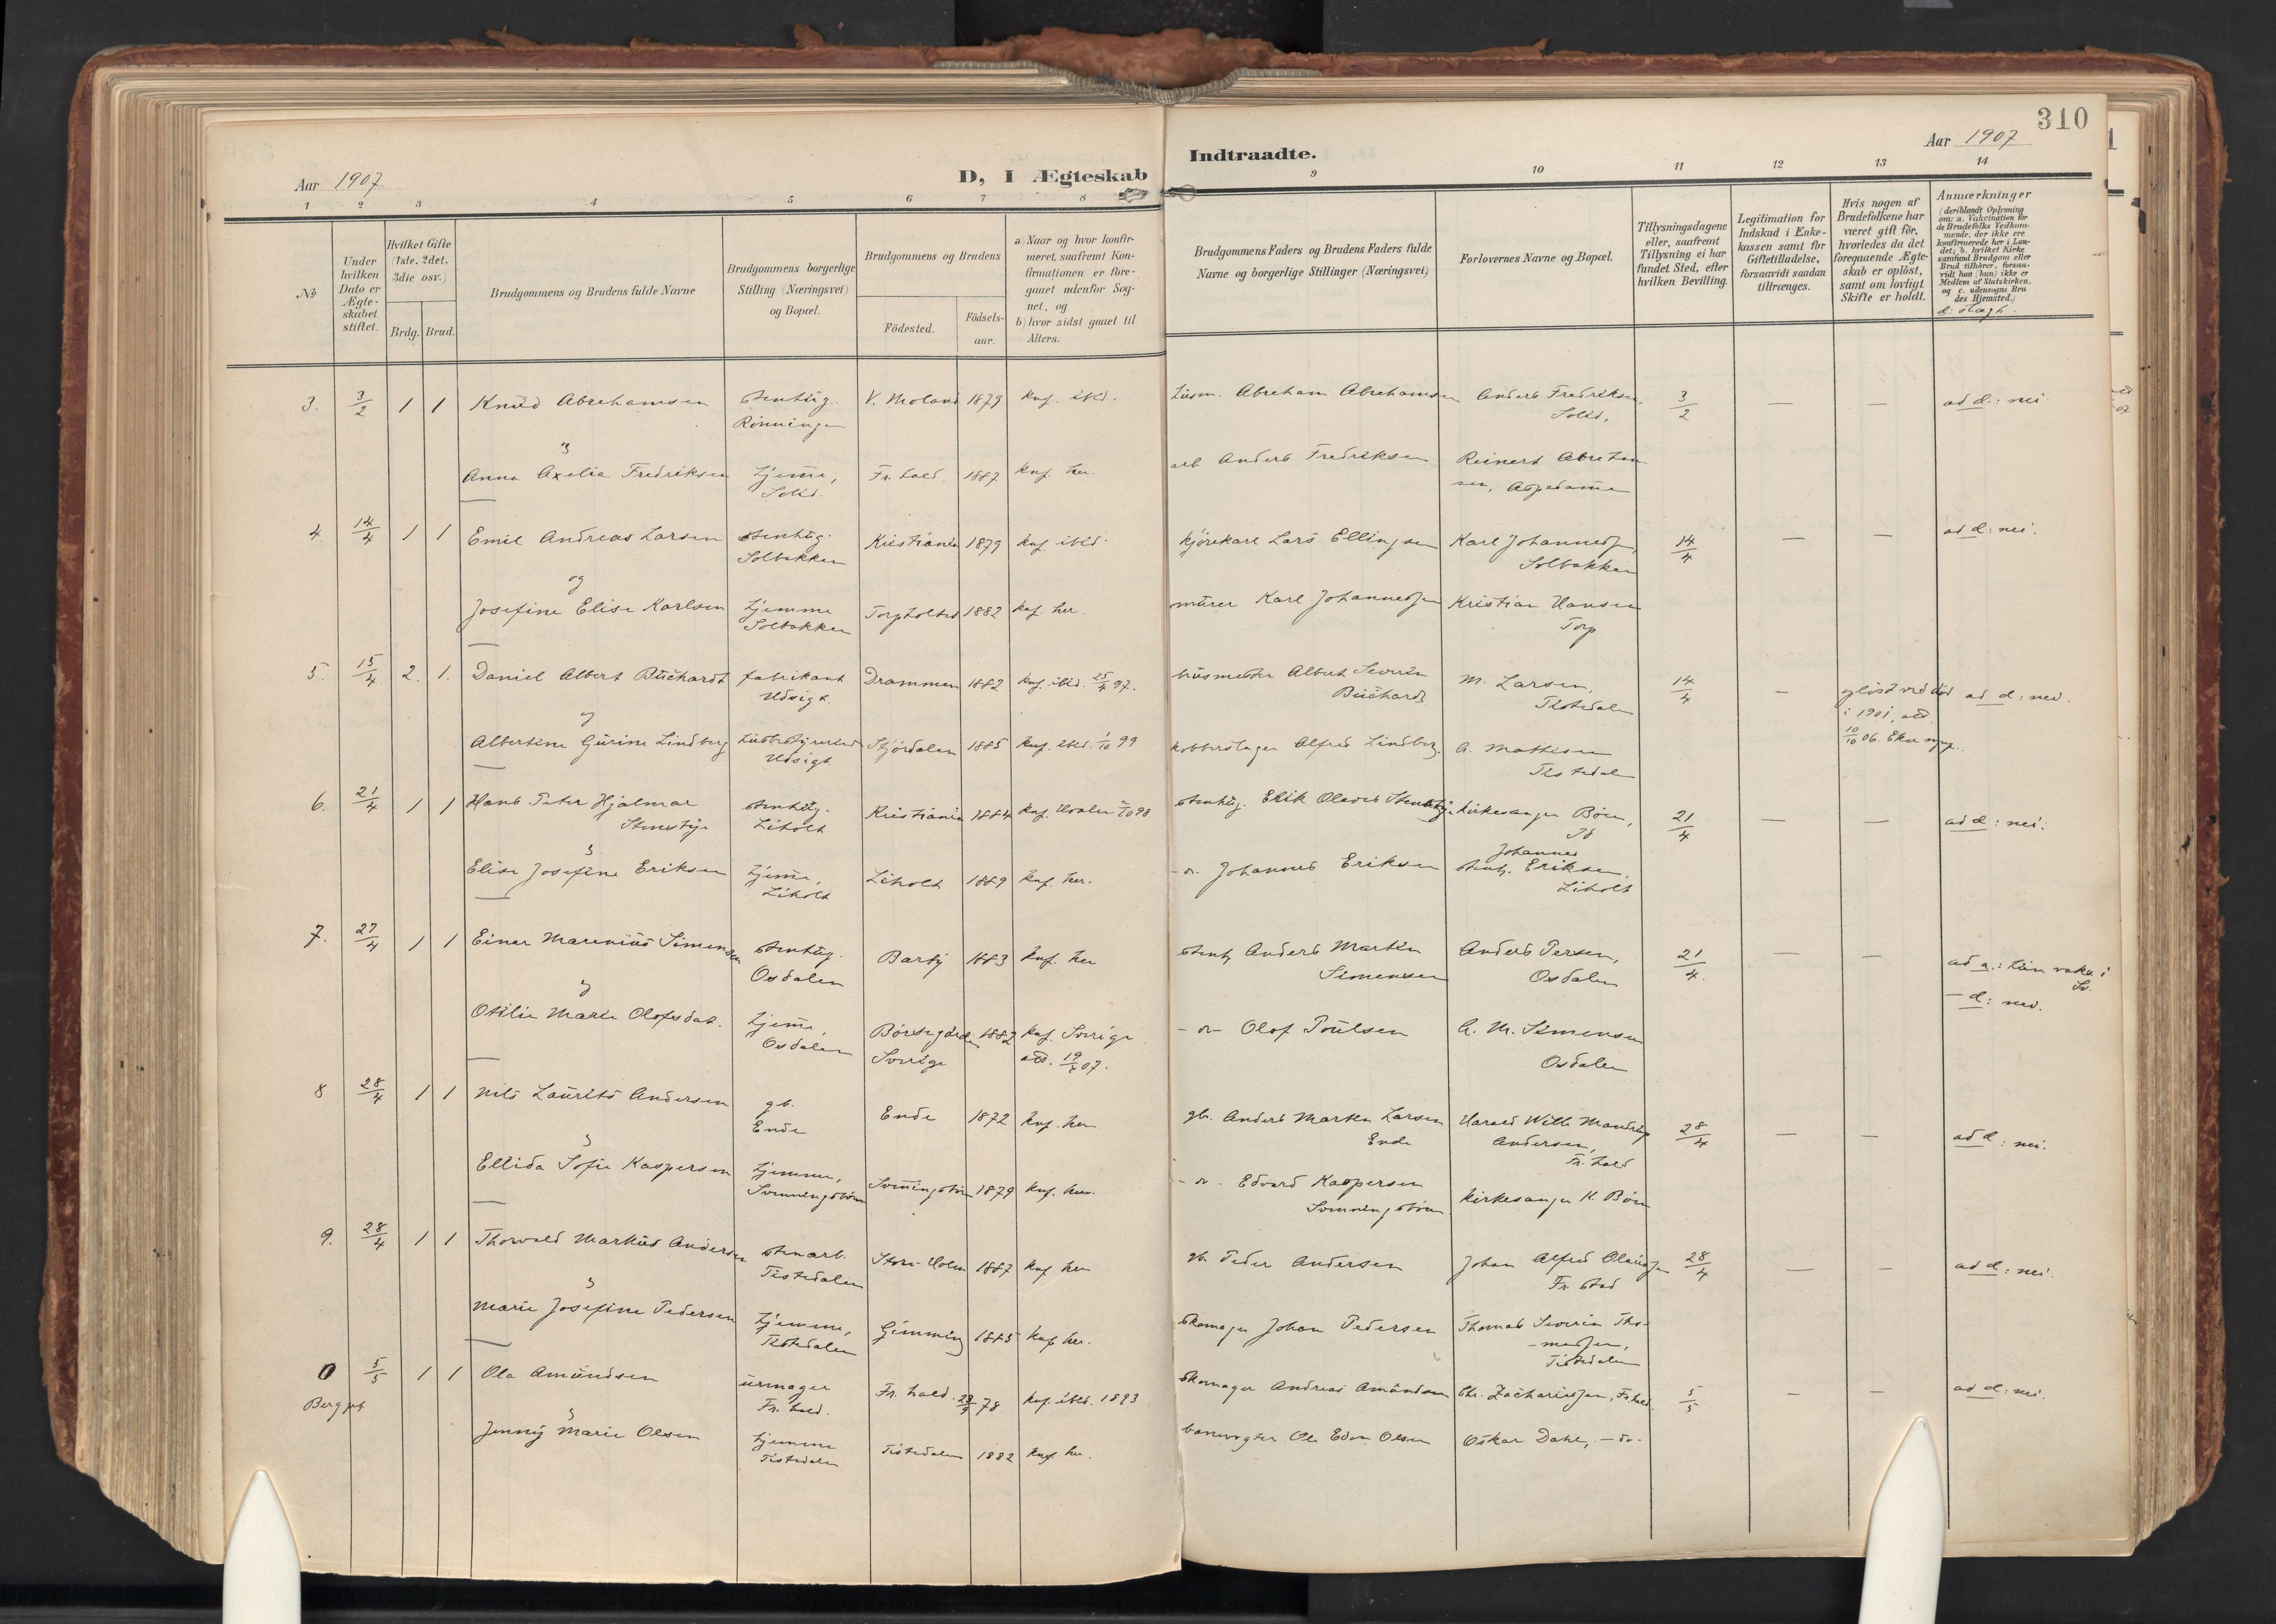 310
Aar 1907.
D, I Ægteskab
Indtraadte.
Aar 1907
1 2 3 4 5 6 7 8 9 10 11 12 13 14
№
Under hvilken Dato er Ægteskabet stiftet.
Hvilket Gifte (1ste, 2det, 3die osv.)
Brdg. Brud.
Brudgommens og Brudens fulde Navne
Brudgommens borgerlige Stilling (Næringsvei) og Bopæl.
Brudgommens og Brudens
Födested.
Födsels-aar.
a) Naar og hvor konfirmeret, saafremt Konfirmationen er foregaaet udenfor Sognet, og
b) hvor sidst gaaet til Alters.
Brudgommens Faders og Brudens Faders fulde Navne og borgerlige Stillinger (Næringsvei)
Forlovernes Navne og Bopæl.
Tillysningsdagene eller, saafremt Tillysning ei har fundet Sted, efter hvilken Bevilling.
Legitimation for Indskud i Enkekassen samt for Giftetilladelse, forsaavidt saadan tiltrænges.
Hvis nogen af Brudefolkene har været gift för, hvorledes da det foregaaende Ægteskab er oplöst, samt om lovligt Skifte er holdt.
Anmærkninger
(deriblandt Oplysning om: a. Vakcination for de Brudefolks Vedkommende, der ikke ere konfirmerede her i Landet; b. hvilket Kirkesamfund Brudgom eller Brud tilhörer, forsaavidt han (hun) ikke er Medlem af Statskirken, og c. udensogns Brudes Hjemsted.)
d: slægt.
3. 3/2 1 1 Knud Abrehamsen stenhug. V. Moland 1879 Knf. ibid. Lusm. Abreham Abrehamsen Anders Fredriksen, 3/2 — — ad d.: nei
Rønningen Solid,
og
Anna Axelia Fredriksen hjemme, Fr.hald 1887 Knf. her arb Anders Fredriksen Reinert Abreham
Solid. sen, Aspedamen
4. 14/4 1 1 Emil Andreas Larsen stenhug. Kristiania 1879 Knf. ibid. kjørekarl Lars Ellingsen Karl Johannessen, 14/4 — — ad d: nei.
Solbakken Solbakken
og
Josefine Elise Karlsen hjemme Torpholtet 1882 Knf. her. murer Karl Johannessen Kristian Hansen
Solbakken Torp
5. 15/4 2. 1. Daniel Albert Buchardt fabrikant Drammen 1882 Knf. ibid. 25/4 97. husmester Albert Severin M. Larsen, 14/4 — opløst ved død ad d: nei.
Udsigt. Buchardt Tistedalen i 1901, att.
og 10/10 06. Eker
Albertine Gurine Lindberg Udsigt Stjørdalen 1885 Knf. ibid. 1/10 99 kobberslager Alfred Lindberg. A. Mathisen
Tistedalen
6. 21/4 1 1 Hans Peter Hjalmar stenhug. Kristiania 1884 Knf. Hvaler 2/10 98 stenhug. Erik Olaves Stensby kirkesanger Böen, 21/4 — — ad d: nei.
Liholt Id
og Johannes
Elise Josefine Eriksen hjemme, Liholt 1889 Knf. her. - " - Johannes Eriksen stenh. Eriksen,
Liholt Liholt
7. 27/4 1 1 Einar Marenius Simensen stenhug. Barby 1883 Knf. her stenh. Anders Martin Anders Persen, 21/4. — — ad a.: hun vakc. i Sv.
Osdalen Simensen Osdalen — d: nei.
og
Otilie Marie Olofsdat. hjemme, Börsegården 1882 Knf. Sverige - " - Olof Poulsen A. M. Simensen
Osdalen Sverige att. 19/4 07. Osdalen
8 28/4 1 1 Nils Laurits Andersen gb. Ende 1872 Knf. her gb. Anders Martin Larsen Harald Wilh. 28/4 — — ad d: nei.
Ende Ende Andersen,
og Fr.hald
Ellida Sofie Kaspersen hjemme, 1879 Knf. her. - " - Edvard Kaspersen kirkesanger K. Böen
9. 28/4 1 1 Thorvald Markus Andersen stenarb. Store-Holm 1887 Knf her gb. Peder Andersen Johan Alfred 28/4 — — ad d: nei.
Tistedalen Fr. stad
og
Marie Josefine Pedersen hjemme, Gimming 1885 Knf her. skomager Johan Pedersen Thomas Severin Tho-
Tistedalen -massen,
Tistedalen
0 5/5 1 1 Ola Amundsen urmager Fr. hald. 23/9 78 Knf. ibid. 1893 skomager Andreas Amundsen Chr. Zachariassen, Fr.hald. 5/5 — — ad d: nei.
Berg pk Fr. hald.
og
Jenny Marie Olsen hjemme Tistedalen 1882 Knf her. banevogter Ole Edvin Olsen Oskar Dahl, — do -
Tistedalen